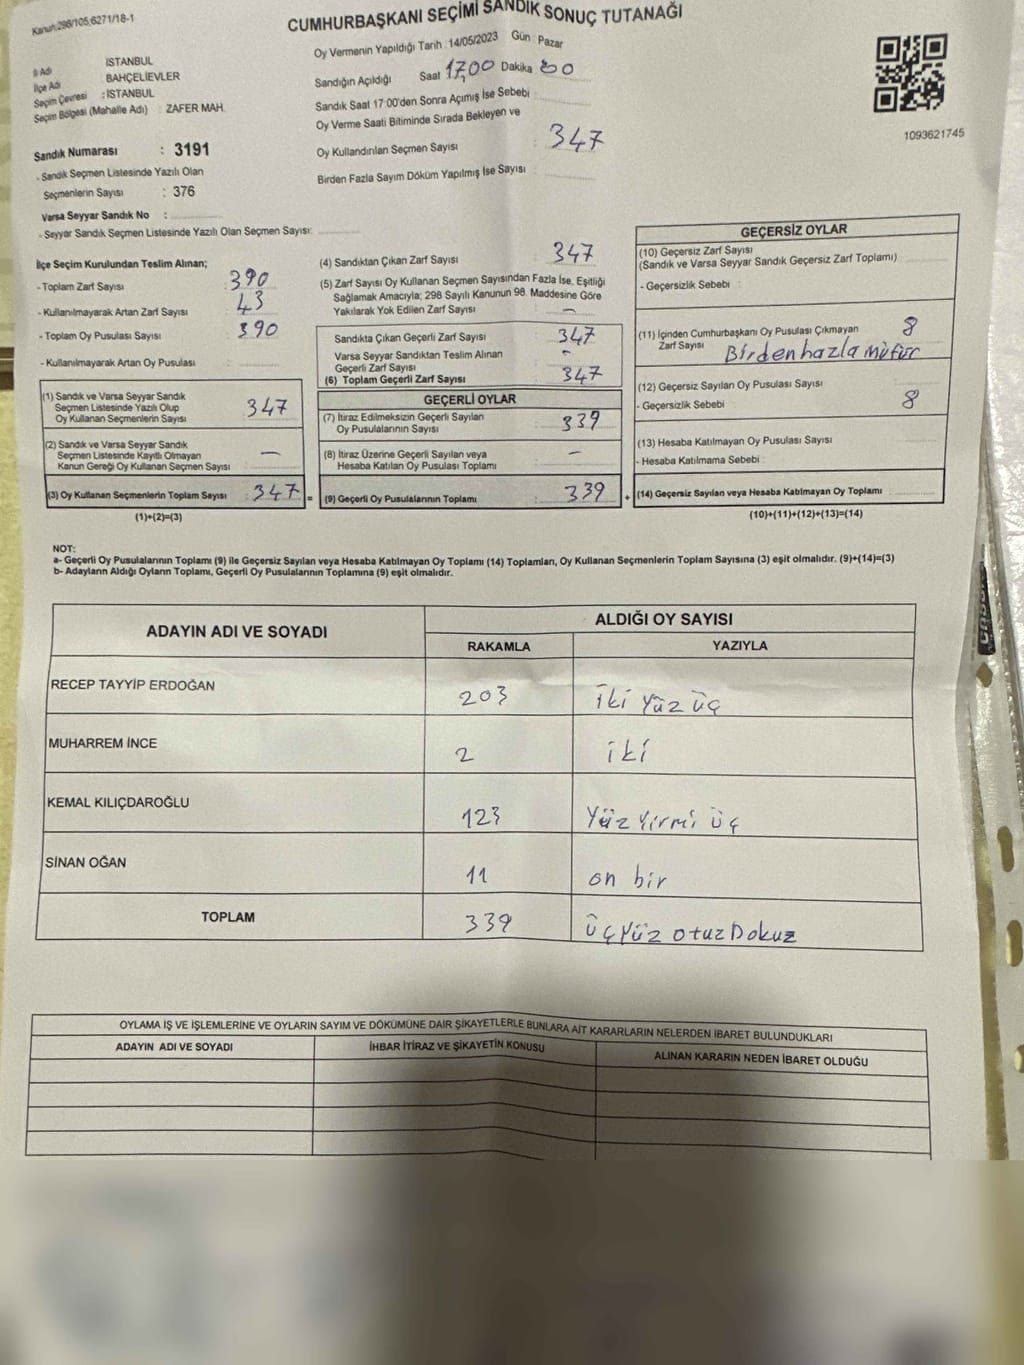 Kanun:298/105,6271/18-1
CUMHURBAŞKANI SEÇİMİ SANDIK SONUÇ TUTANAĞI
İl Adı İSTANBUL
İlçe Adı BAHÇELİEVLER
Seçim Çevresi : İSTANBUL
Seçim Bölgesi (Mahalle Adı) : ZAFER MAH.
Sandık Numarası : 3191
- Sandık Seçmen Listesinde Yazılı Olan
Seçmenlerin Sayısı : 376
Varsa Seyyar Sandık No :
- Seyyar Sandık Seçmen Listesinde Yazılı Olan Seçmen Sayısı:
Oy Vermenin Yapıldığı Tarih : 14/05/2023 Gün : Pazar
Sandığın Açıldığı Saat 17,00 Dakika 00
Sandık Saat 17:00'den Sonra Açımış İse Sebebi
Oy Verme Saati Bitiminde Sırada Bekleyen ve
Oy Kullandırılan Seçmen Sayısı : 347
Birden Fazla Sayım Döküm Yapılmış İse Sayısı :
1093621745
İlçe Seçim Kurulundan Teslim Alınan;
- Toplam Zarf Sayısı : 390
- Kullanılmayarak Artan Zarf Sayısı : 43
- Toplam Oy Pusulası Sayısı : 390
- Kullanılmayarak Artan Oy Pusulası :
(1) Sandık ve Varsa Seyyar Sandık
Seçmen Listesinde Yazılı Olup
Oy Kullanan Seçmenlerin Sayısı : 347
(2) Sandık ve Varsa Seyyar Sandık
Seçmen Listesinde Kayıtlı Olmayan
Kanun Gereği Oy Kullanan Seçmen Sayısı : —
(3) Oy Kullanan Seçmenlerin Toplam Sayısı : 347 =
(1)+(2)=(3)
(4) Sandıktan Çıkan Zarf Sayısı : 347
(5) Zarf Sayısı Oy Kullanan Seçmen Sayısından Fazla İse, Eşitliği
Sağlamak Amacıyla; 298 Sayılı Kanunun 98. Maddesine Göre
Yakılarak Yok Edilen Zarf Sayısı : —
Sandıkta Çıkan Geçerli Zarf Sayısı : 347
Varsa Seyyar Sandıktan Teslim Alınan
Geçerli Zarf Sayısı : -
(6) Toplam Geçerli Zarf Sayısı : 347
GEÇERLİ OYLAR
(7) İtiraz Edilmeksizin Geçerli Sayılan
Oy Pusulalarının Sayısı : 339
(8) İtiraz Üzerine Geçerli Sayılan veya
Hesaba Katılan Oy Pusulası Toplamı : —
(9) Geçerli Oy Pusulalarının Toplamı : 339 +
GEÇERSİZ OYLAR
(10) Geçersiz Zarf Sayısı
(Sandık ve Varsa Seyyar Sandık Geçersiz Zarf Toplamı)
- Geçersizlik Sebebi :
(11) İçinden Cumhurbaşkanı Oy Pusulası Çıkmayan
Zarf Sayısı 8
Birden hazla Mühür
(12) Geçersiz Sayılan Oy Pusulası Sayısı
- Geçersizlik Sebebi 8
(13) Hesaba Katılmayan Oy Pusulası Sayısı
- Hesaba Katılmama Sebebi :
(14) Geçersiz Sayılan veya Hesaba Katılmayan Oy Toplamı :
(10)+(11)+(12)+(13)=(14)
NOT:
a- Geçerli Oy Pusulalarının Toplamı (9) ile Geçersiz Sayılan veya Hesaba Katılmayan Oy Toplamı (14) Toplamları, Oy Kullanan Seçmenlerin Toplam Sayısına (3) eşit olmalıdır. (9)+(14)=(3)
b- Adayların Aldığı Oyların Toplamı, Geçerli Oy Pusulalarının Toplamına (9) eşit olmalıdır.
ADAYIN ADI VE SOYADI ALDIĞI OY SAYISI
RAKAMLA YAZIYLA
RECEP TAYYİP ERDOĞAN 203 iki Yüz üç
MUHARREM İNCE 2 iki
KEMAL KILIÇDAROĞLU 123 Yüz Yirmi üç
SİNAN OĞAN 11 on bir
TOPLAM 339 üçYüz otuz Dokuz
OYLAMA İŞ VE İŞLEMLERİNE VE OYLARIN SAYIM VE DÖKÜMÜNE DAİR ŞİKAYETLERLE BUNLARA AİT KARARLARIN NELERDEN İBARET BULUNDUKLARI
ADAYIN ADI VE SOYADI İHBAR İTİRAZ VE ŞİKAYETİN KONUSU ALINAN KARARIN NEDEN İBARET OLDUĞU